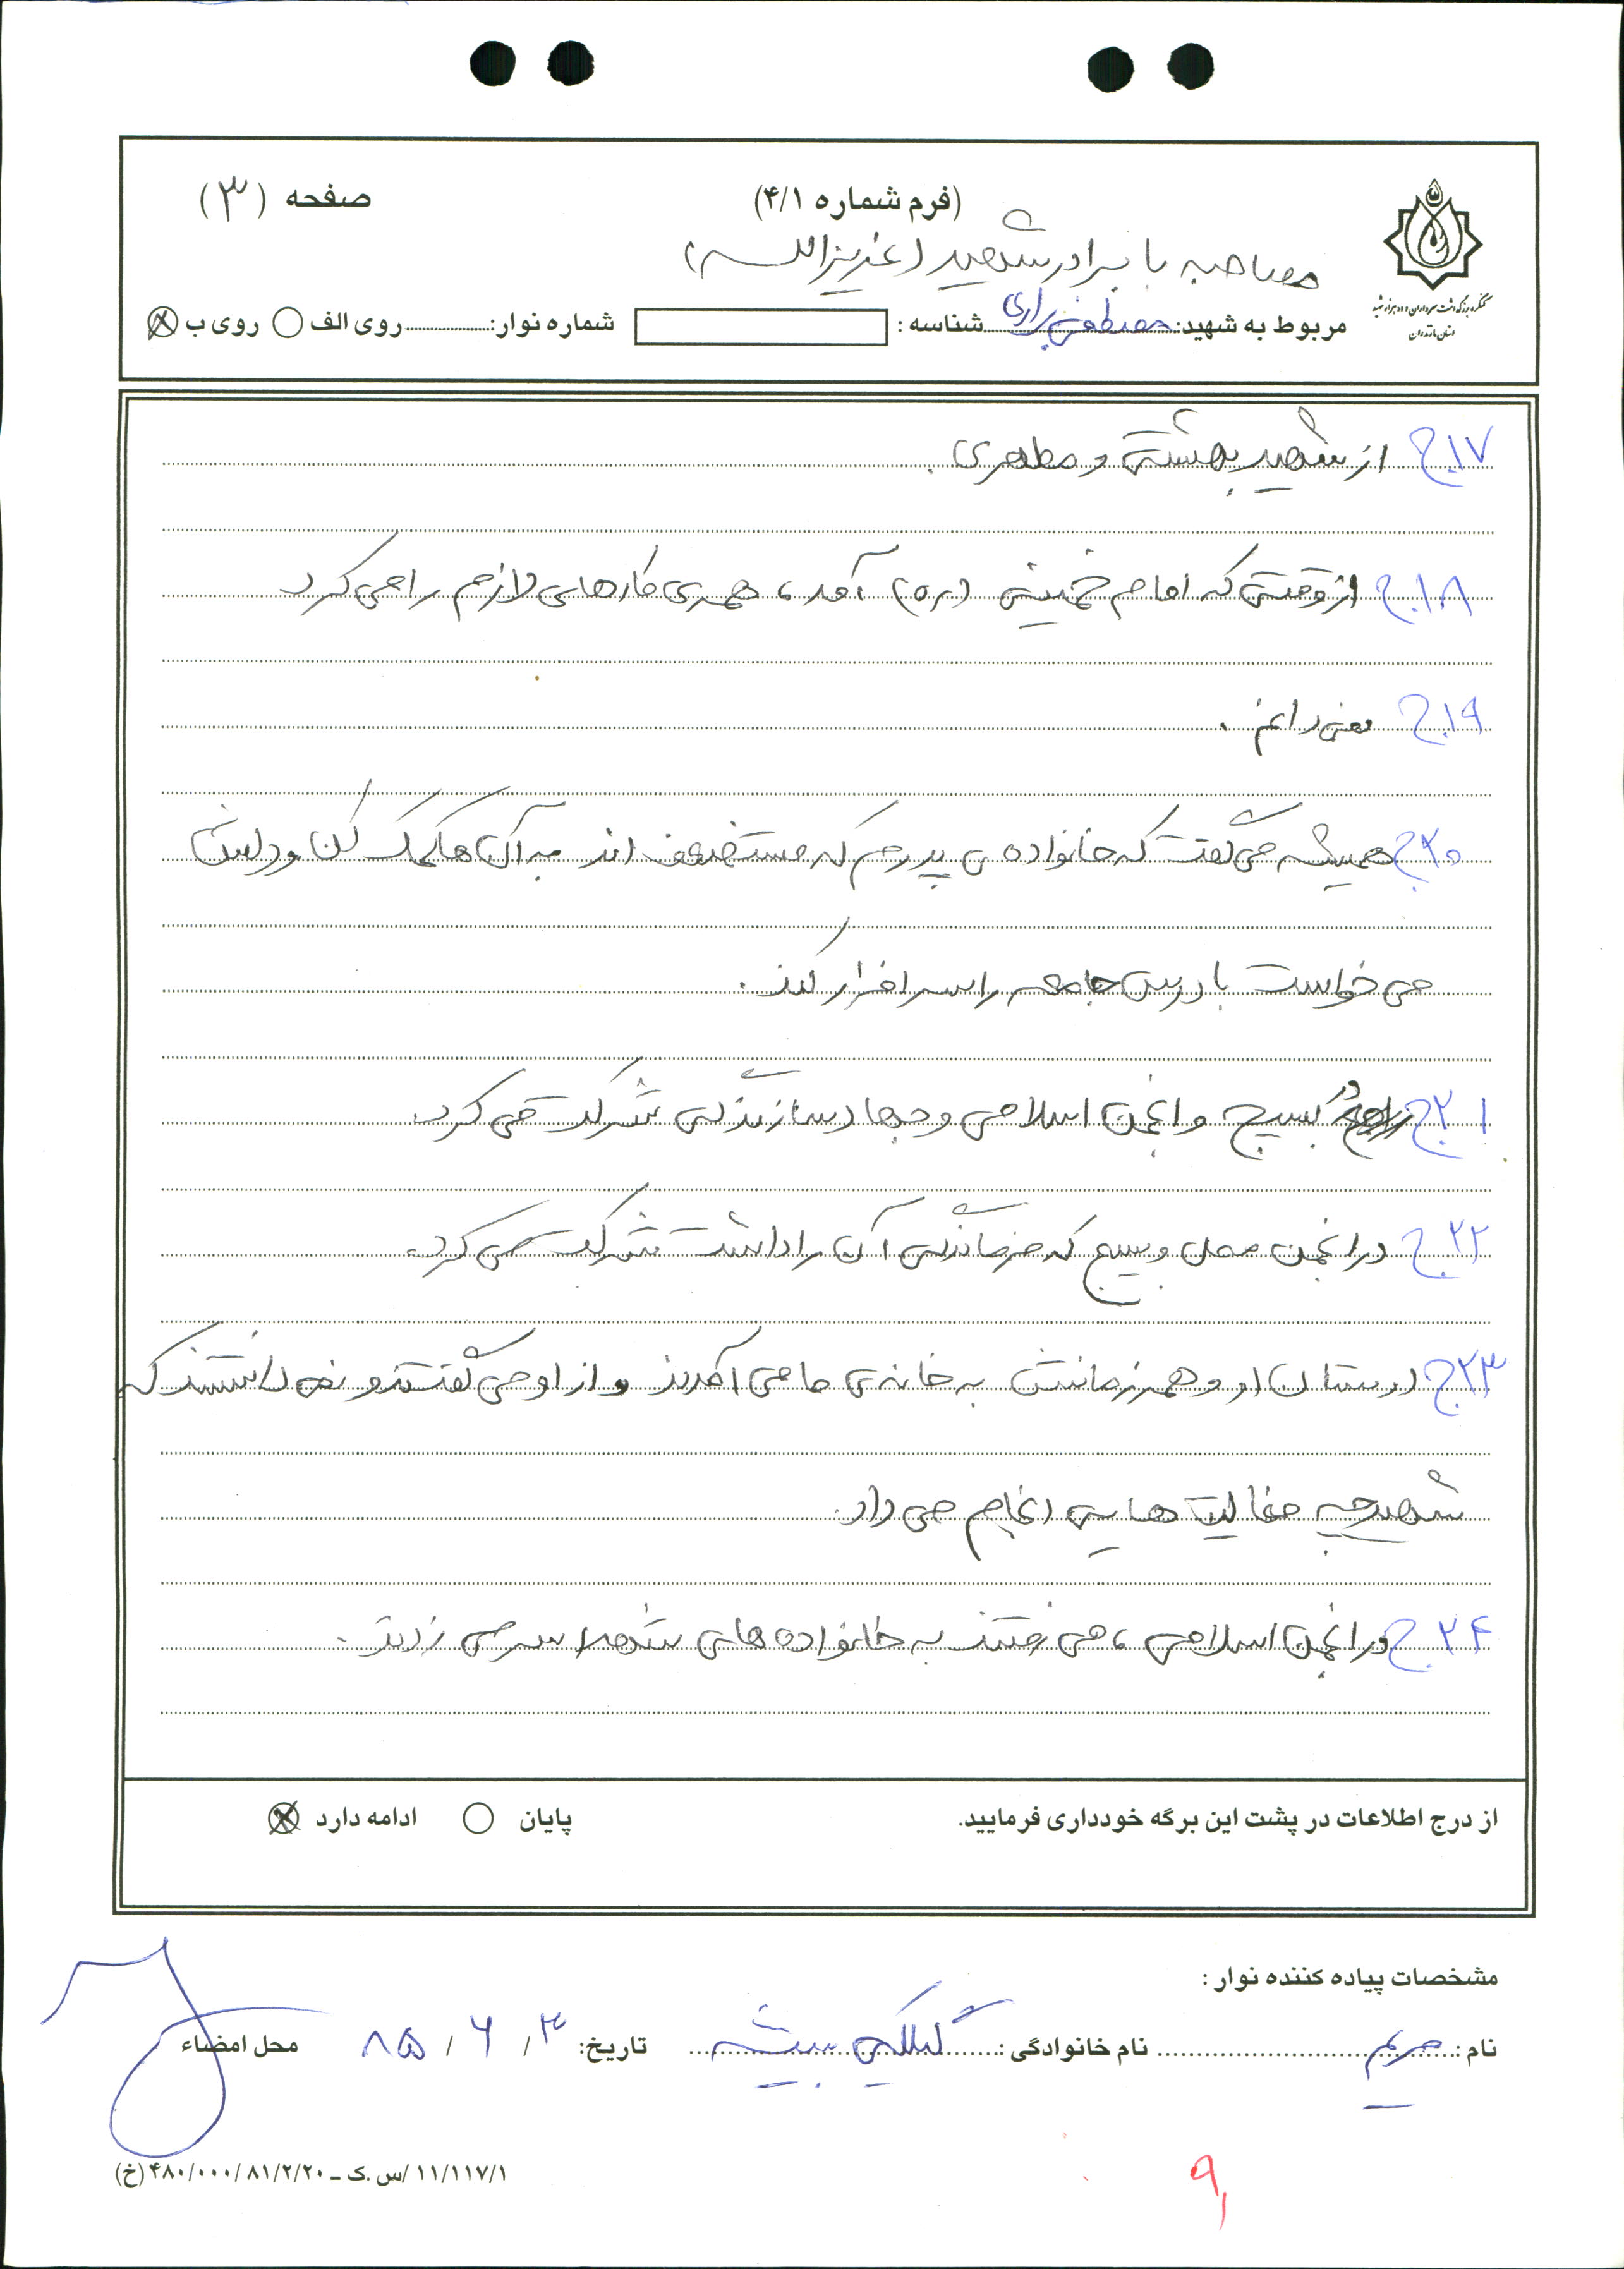 (فرم شماره ۴/۱)
صفحه (۳)
مصاحبه با برادر شهید (عزیزالله)
کنگره بزرگداشت سرداران و ده هزار شهید
استان مازندران
مربوط به شهید: مصطفی براری شناسه : شماره نوار: روی الف روی ب
ج۱۷ از شهید بهشتی و مطهری .
ج۱۸ از وقتی که امام خمینی (ره) آمد، همه‌ی کارهای لازم را می کرد
ج۱۹ نمی دانم .
ج۲۰ همیشه می گفت که خانواده ی پدرم که مستضعف اند به آن ها کمک کن و دلش
می خواست با درس جامعه را سرافراز کند .
ج۲۱ در بسیج و انجمن اسلامی و جهاد سازندگی شرکت می کرد.
ج۲۲ در انجمن محل و بسیج که فرماندگی آن را داشت شرکت می کرد.
ج۲۳ دوستان او و همرزمانش به خانه‌ی ما می آمدند و از او می گفتند و نمی دانستند که
شهید چه فعالیت هایی انجام می داد.
ج۲۴ در انجمن اسلامی ، می رفتند به خانواده های شهدا سر می زدند .
از درج اطلاعات در پشت این برگه خودداری فرمایید.
پایان ادامه دارد
مشخصات پیاده کننده نوار :
نام : مریم نام خانوادگی : گیلکی بیشه تاریخ: ۳ / ۶ / ۸۵ محل امضاء
۱۱/۱۱۷/۱ /س .ک ـ ۴۸۰/۰۰۰/۸۱/۲/۲۰ (خ)
۹